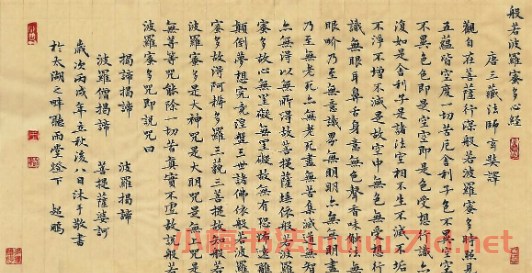 般若波羅蜜多心經
唐三藏法師玄奘譯
觀自在菩薩行深般若波羅蜜多時照見
五蘊皆空度一切苦厄舍利子色不異空空
不異色色即是空空即是色受想行識亦
復如是舍利子是諸法空相不生不滅不垢
不淨不增不減是故空中無色無受想行
識無眼耳鼻舌身意無色聲香味觸法無
眼界乃至無意識界無無明亦無無明盡
乃至無老死亦無老死盡無苦集滅道無智
亦無得以無所得故菩提薩埵依般若波羅
蜜多故心無罣礙無罣礙故無有恐怖遠離
顛倒夢想究竟涅槃三世諸佛依般若波羅
蜜多故得阿耨多羅三藐三菩提故知般若
波羅蜜多是大神咒是大明咒是無上咒是
無等等咒能除一切苦真實不虛故說般若
波羅蜜多咒即說咒曰
揭諦揭諦 波羅揭諦
波羅僧揭諦 菩提薩婆訶
歲次丙戌年立秋後八日沐手敬書
於太湖之畔聽雨堂燈下 超鵬
小梅书法www.7ld.net